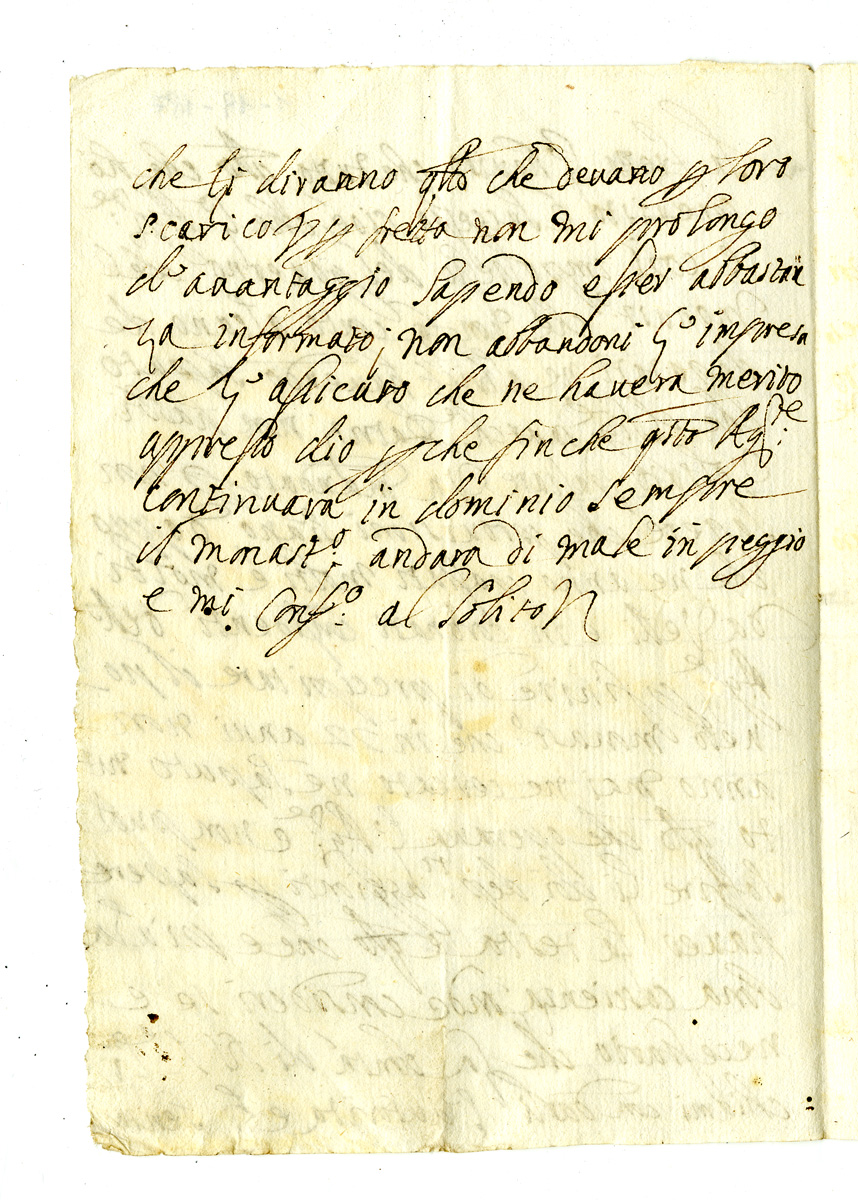 che li diranno qto che devano p loro
scarico, p fretta non mi prolongo
d'avantaggio sapendo esser abbastan
za informato; non abbandoni l'impresa
che l'assicuro che ne havera merito
appresso dio p che sin che qto Agte:
continuara in dominio sempre
il monasto: andara di male in peggio
e mi Conso: al solito